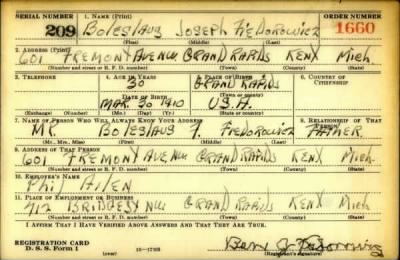 SERIAL NUMBER 1. NAME (Print) ORDER NUMBER
209 Boleslaus Joseph Fiedorowicz 1660
(First) (Middle) (Last)
2. ADDRESS (Print)
601 FREMONT AVENUE GRAND RAPIDS KENT Mich.
(Number and street or R. F. D. number) (Town) (County) (State)
3. TELEPHONE 4. AGE IN YEARS 5. PLACE OF BIRTH 6. COUNTRY OF CITIZENSHIP
30 GRAND RAPIDS
DATE OF BIRTH (Town or county)
MAR. 30 1910 U.S.A.
(Exchange) (Number) (Mo.) (Day) (Yr.) (State or country)
7. NAME OF PERSON WHO WILL ALWAYS KNOW YOUR ADDRESS 8. RELATIONSHIP OF THAT PERSON
MR. Boleslaus F. Fiedorowicz FATHER
(Mr., Mrs., Miss) (First) (Middle) (Last)
9. ADDRESS OF THAT PERSON
601 FREMONT AVE NW GRAND RAPIDS KENT Mich.
(Number and street or R. F. D. number) (Town) (County) (State)
10. EMPLOYER'S NAME
Phil Allen
11. PLACE OF EMPLOYMENT OR BUSINESS
712 BRIDGE ST NW GRAND RAPIDS KENT Mich.
(Number and street or R. F. D. number) (Town) (County) (State)
I AFFIRM THAT I HAVE VERIFIED ABOVE ANSWERS AND THAT THEY ARE TRUE.
REGISTRATION CARD
D. S. S. Form 1 (Registrant's signature)